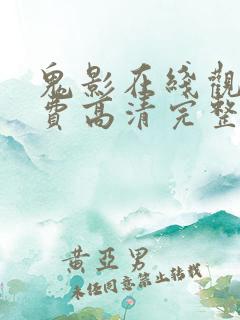 鬼影在綫觀
費高清完整
黃亞男
未经同意禁止转载